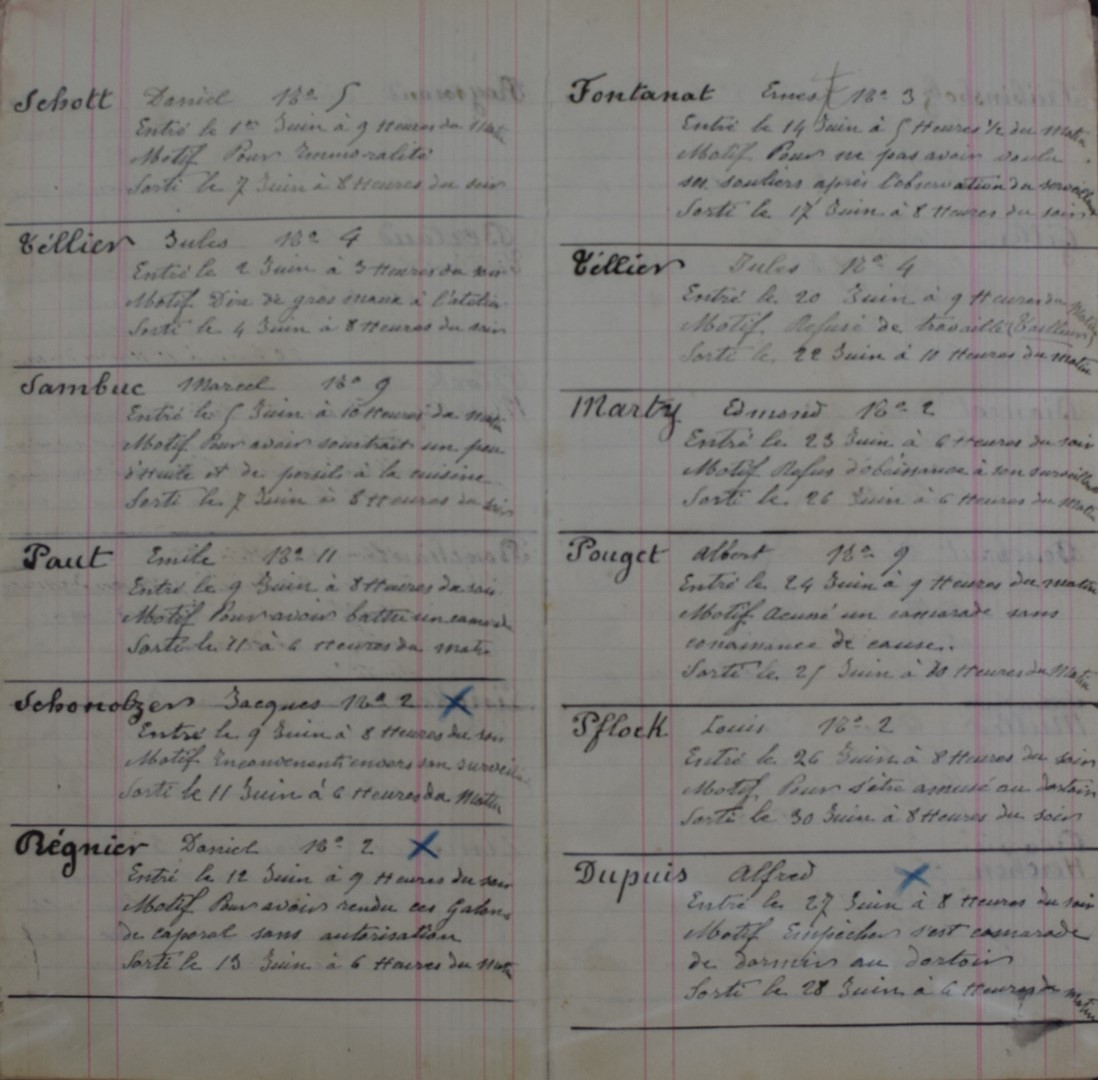 Schott Daniel No 5
Entré le 1er Juin à 9 Heures du Mat
Motif Pour Immoralité
Sorti le 7 Juin à 8 Heures du soir
Téllier Jules No 4
Entré le 2 Juin à 3 Heures du soir
Motif Dire de gros maux à l'atelier
Sorti le 4 Juin à 8 Heures du soir
Sambuc Marcel No 9
Entré le 5 Juin à 10 Heures du matin
Motif Pour avoir soustrait un peu
d'Huile et de persils à la cuisine
Sorti le 7 Juin à 8 Heures du soir
Paut Emile No 11
Entré le 9 Juin à 8 Heures du soir
Motif Pour avoir battu un camarade
Sorti le 11 à 6 Heures du matin
Schonolzer Jacques No 2
Entré le 9 Juin à 8 Heures du soir
Motif Inconvenents envers son surveil
Sorti le 11 Juin à 6 Heures du Matin
Régnier Daniel No 2
Entré le 12 Juin à 9 Heures du soir
Motif Pour avoir rendu ces Galons
de caporal sans autorisation
Sorti le 13 Juin à 6 Heures du Matin
Fontanat Ernest No 3
Entré le 14 Juin à 5 Heures 1/2 du matin
Motif Pour ne pas avoir
ses souliers après l'observation du surveillant
Sorti le 17 Juin à 8 Heures du soir
Téllier Jules No 4
Entré le 20 Juin à 9 Heures du Matin
Motif Refusé de travailler (Tailleur)
Sorti le 22 Juin à 10 Heures du matin
Marty Edmond No 2
Entré le 23 Juin à 6 Heures du soir
Motif Refus d'obéissance à son surveillant
Sorti le 26 Juin à 6 Heures du Matin
Pouget Albert No 9
Entré le 24 Juin à 9 Heures du matin
Motif Acusé un camarade sans
conaissance de cause.
Sorti le 25 Juin à 10 Heures du Matin
Pflock Louis No 2
Entré le 26 Juin à 8 Heures du soir
Motif Pour s'être amusé au dortoir
Sorti le 30 Juin à 8 Heures du soir
Dupuis Alfred
Entré le 27 Juin à 8 Heures du soir
Motif Empêcher s'est camarade
de dormir au dortoir
Sorti le 28 Juin à 6 Heures du matin